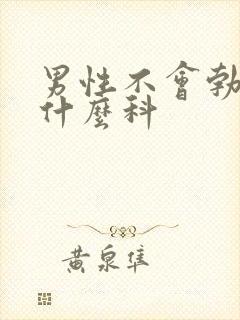 男性不會勃
什麼科
黃泉隼